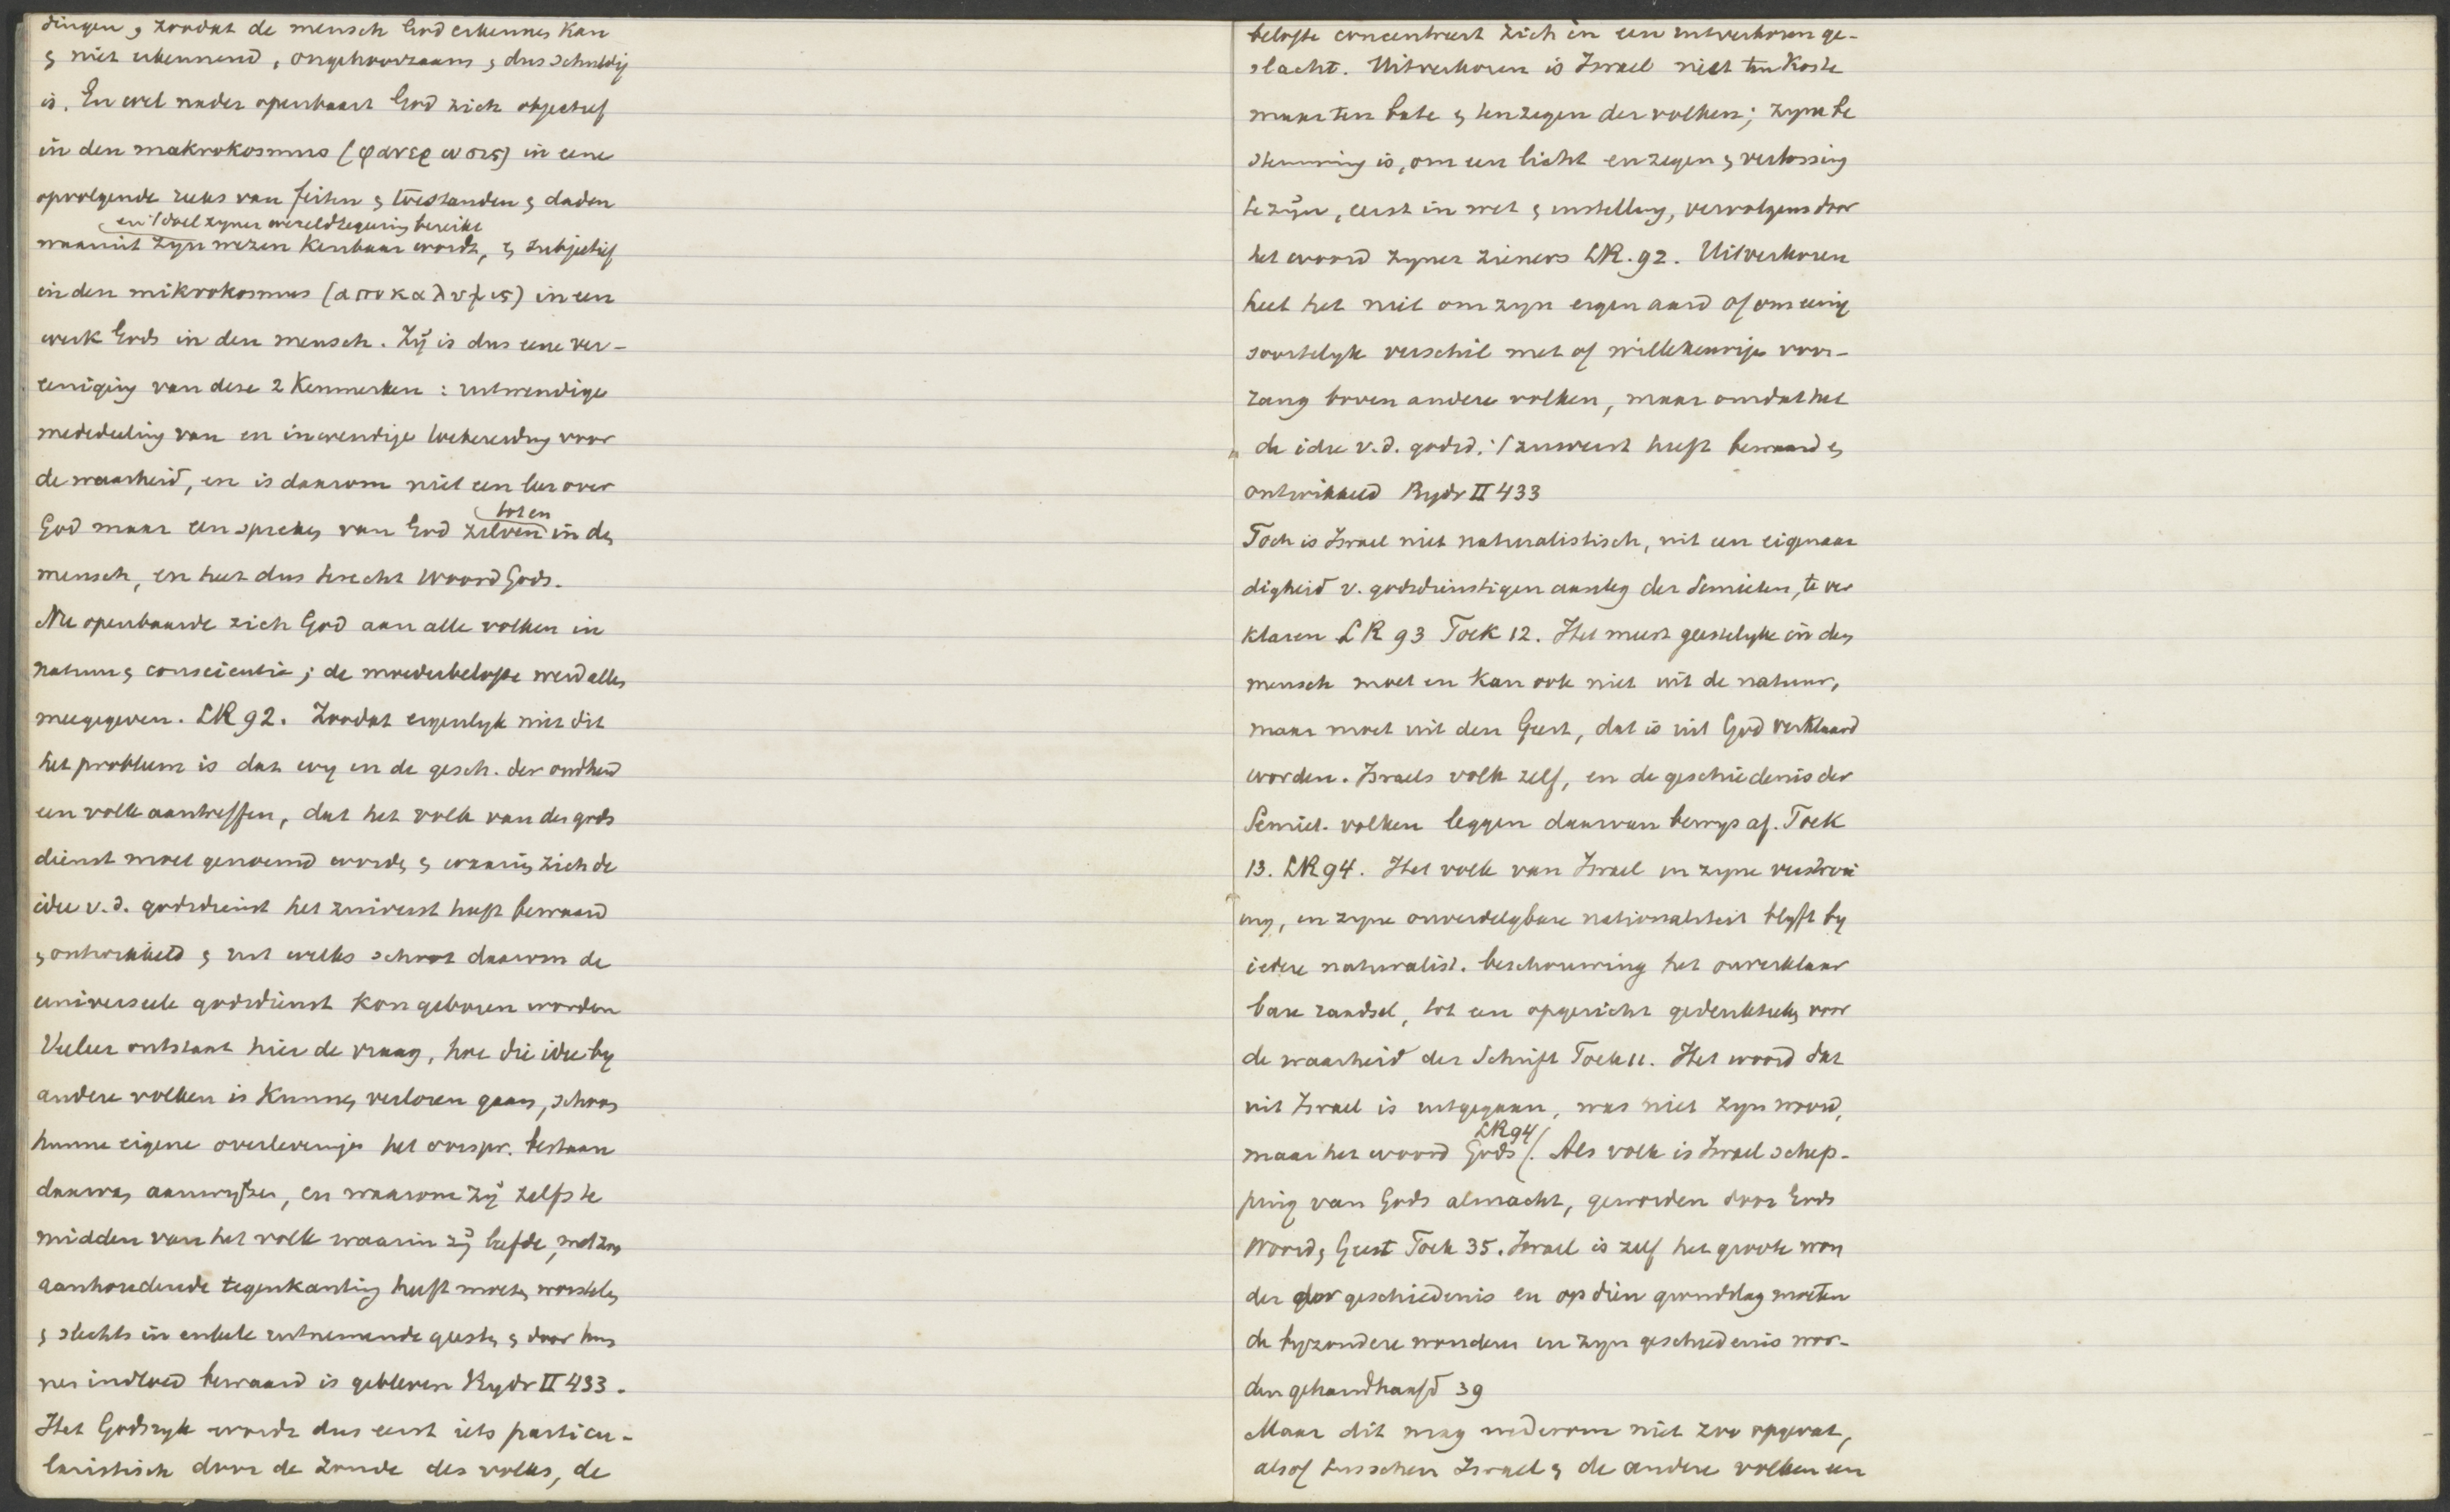 dingen, zoodat de mensch God erkennen kan
& niet erkennend, ongehoorzaam & dus schuldig
is. En wel nader openbaart God zich objectief
in den makrokosmus (φανερωσις) in eene
opvolgende reeks van feiten & toestanden & daden
en 't doel zyner wereldregeering bereikt
waaruit zyn wezen kenbaar wordt, & subjectief
in den mikrokosmus (αποκαλυψις) in een
werk Gods in den mensch. Zij is dus eene ver-
eeniging van deze 2 kenmerken: uitwendige
mededeeling van en inwendige toebereiding voor
de waarheid, en is daarom niet een leer over
God maar een spreken van God zelven tot en in den
mensch, en heet dus terecht Woord Gods.
Nu openbaarde zich God aan alle volken in
natuur & conscientie; de moederbelofte werd allen
meegegeven. LR 92. Zoodat eigenlyk niet dit
het probleem is dat wy in de gesch. der oudheid
een volk aantreffen, dat het volk van den gods
dienst moet genoemd worden & waarin zich de
idee v.d. godsdienst het zuiverst heeft bewaard
& ontwikkeld & uit welks schoot daarom de
universeele godsdienst kon geboren worden
Veeleer ontstaat hier de vraag, hoe die idee by
andere volken is kunnen verloren gaan, schoon
hunne eigene overleveringen het oorspr. bestaan
daarvan aanwyzen, en waarom zij zelfs te
midden van het volk waarin zij leefde, met zoo
aanhoudende tegenkanting heeft moeten worstelen
& slechts in enkele uitnemende geesten & door hun
nen invloed bewaard is gebleven Rydr II 433.
Het Godsryk wordt dus eerst iets particu-
laristisch door de zonde des volks, de
belofte concentreert zich in een uitverkoren ge-
slacht. Uitverkoren is Israel niet ten koste
maar ten bate & ten zegen der volken; zyne be
stemming is, om een licht en zegen & verlossing
te zijn, eerst in wet & instelling, vervolgens door
het woord zyner zieners LR. 92. Uitverkoren
heet het niet om zyn eigen aard of om eenig
soortelyk verschil met of willekeurige voor-
rang boven andere volken, maar omdat het
de idee v.d. godsd. 't zuiverst heeft bewaard &
ontwikkeld Rydr II 433
Toch is Israel niet naturalistisch, uit een eigenaar
digheid v. godsdienstigen aanleg der Semieten, te ver
klaren LR 93 Toek 12. Het meest geestelyke in den
mensch moet en kan ook niet uit de natuur,
maar moet uit den Geest, dat is uit God verklaard
worden. Israels volk zelf, en de geschiedenis der
Semiet. volken leggen daarvan bewys af. Toek
13. LR 94. Het volk van Israel in zyne verstrooi
ing, in zyne onverdelgbare nationaliteit blyft by
iedere naturalist. beschouwing het onverklaar
bare raadsel, tot een opgericht gedenkteeken voor
de waarheid der Schrift Toek 11. Het woord dat
uit Israel is uitgegaan, was niet zyn woord,
maar het woord Gods LR 94. Als volk is Israel schep-
ping van Gods almacht, geworden door Gods
Woord & Geest Toek 35. Israel is zelf het groote won
der der geschiedenis en op dien grondslag moeten
de byzondere wonderen in zyn geschiedenis wor-
den gehandhaafd 39
Maar dit mag wederom niet zoo opgevat,
alsof tusschen Israel & de andere volken een